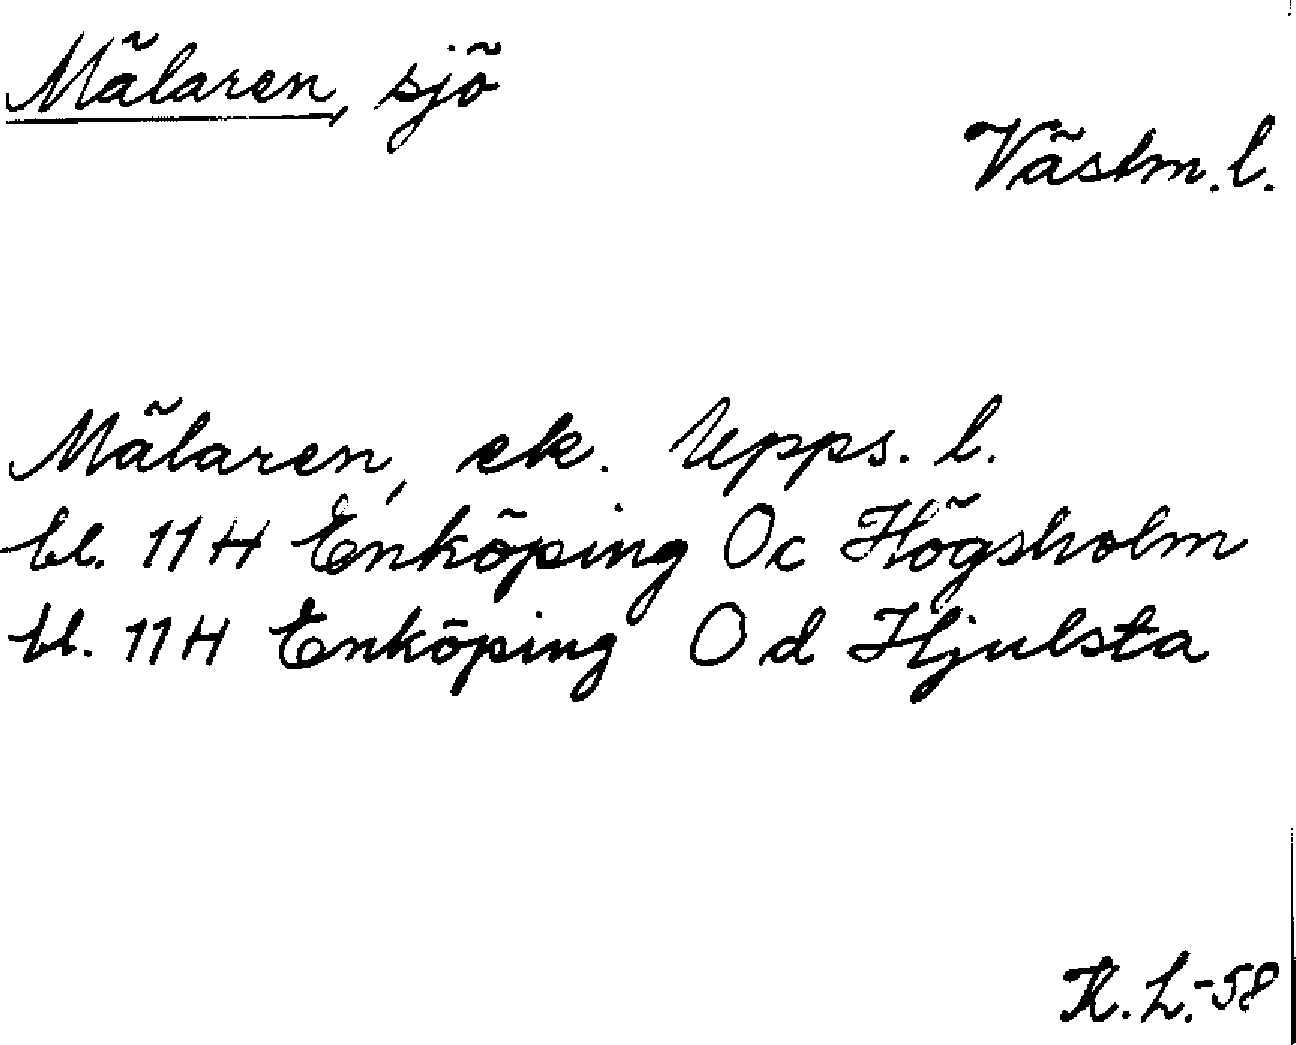 Mälaren, sjö
Västm. l.
Mälaren, ek. Upps. l.
bl. 11 H Enköping 0c Högsholm
bl. 11 H Enköping 0d Hjulsta
K. L. -58